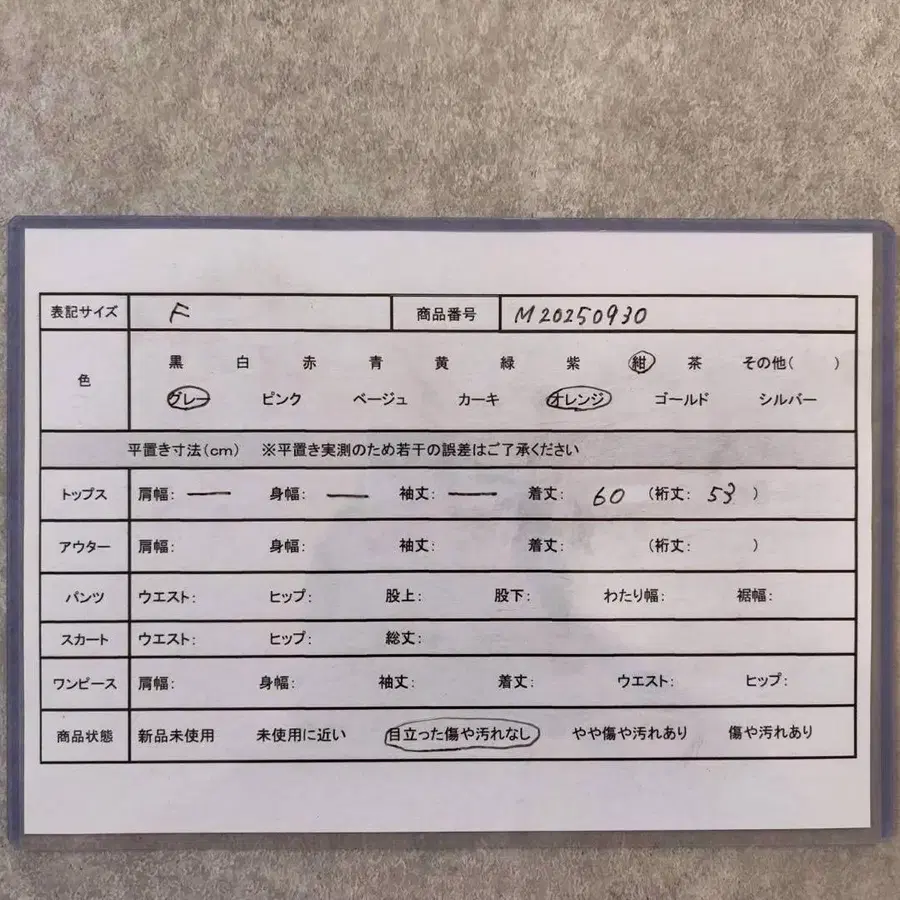 表記サイズ F 商品番号 M20250930
色
黒 白 赤 青 黄 緑 紫 紺 茶 その他( )
グレー ピンク ベージュ カーキ オレンジ ゴールド シルバー
平置き寸法(cm) ※平置き実測のため若干の誤差はご了承ください
トップス 肩幅: — 身幅: — 袖丈: — 着丈: 60 (裄丈: 53 )
アウター 肩幅: 身幅: 袖丈: 着丈: (裄丈: )
パンツ ウエスト: ヒップ: 股上: 股下: わたり幅: 裾幅:
スカート ウエスト: ヒップ: 総丈:
ワンピース 肩幅: 身幅: 袖丈: 着丈: ウエスト: ヒップ:
商品状態 新品未使用 未使用に近い 目立った傷や汚れなし やや傷や汚れあり 傷や汚れあり